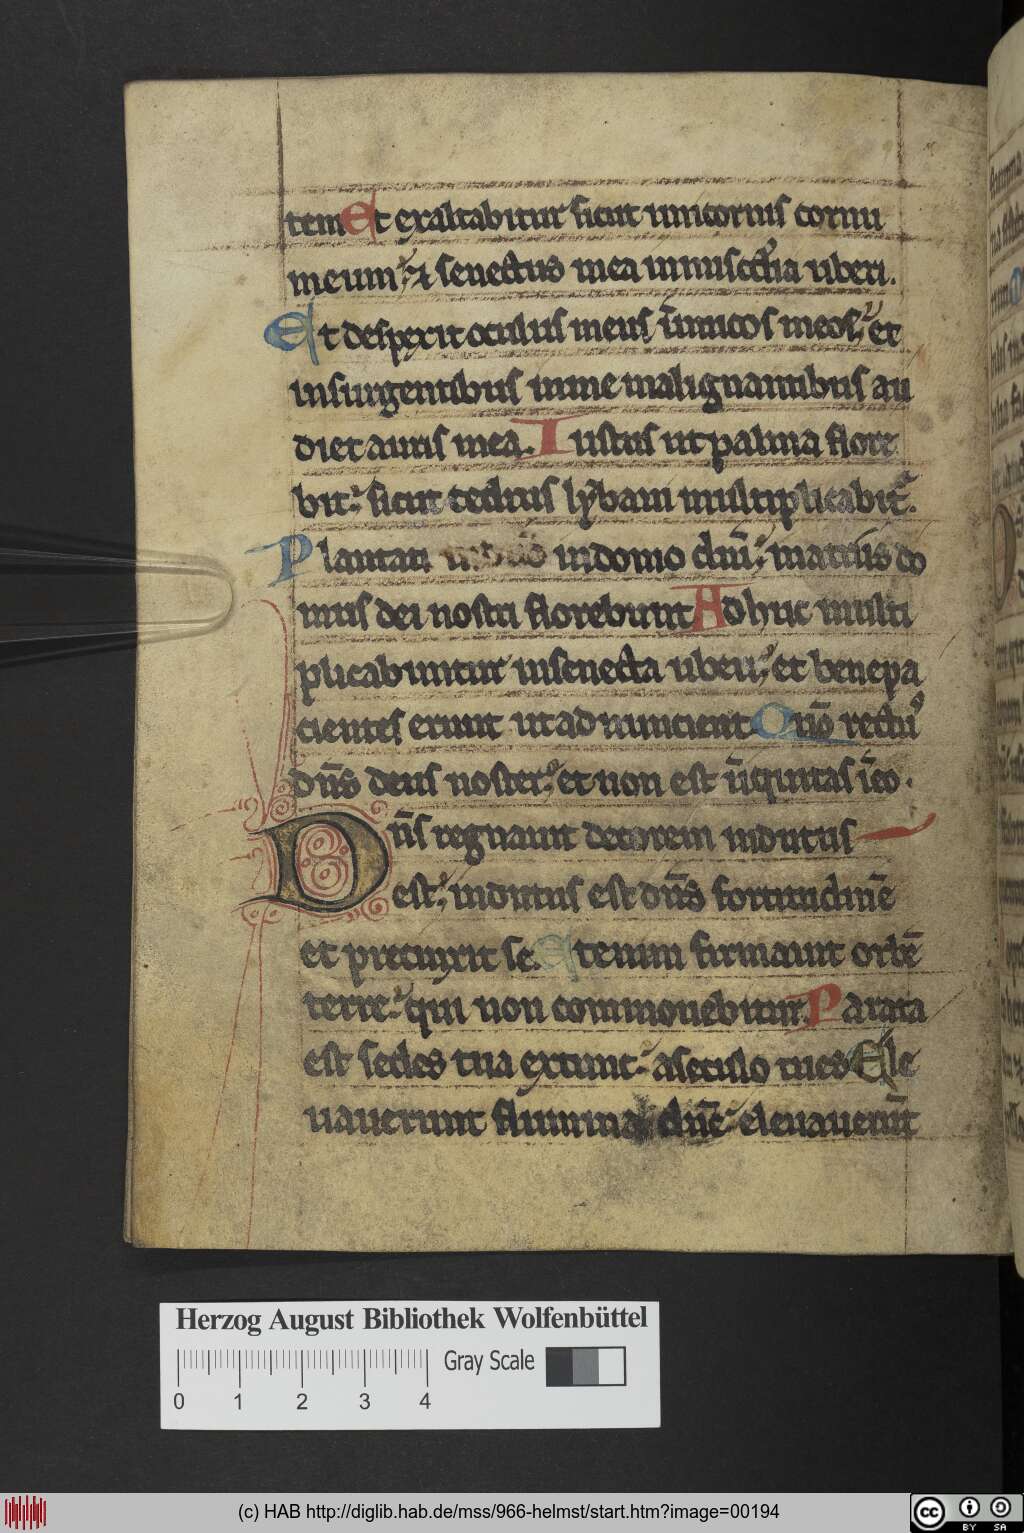 tem Et exaltabitur sicut unicornis cornu
meum ⁊ senectus mea inmisericordia uberi.
Et despexit oculus meus īimicos meos, et
insurgentibus inme malignantibus au
diet auris mea. Iustus ut palma flore
bit. sicut cedrus lybani multiplicabit̄.
Plantati indomo dnī. in atriis do
mus dei nostri florebunt Adhuc multi
plicabuntur insenecta uberi, et benepa
cientes erunt ut adnuncient Qnō rectus
dn̄s deus noster. et non est īiquitas īeo.
Dn̄s regnauit decorem indutus
est, indutus est dn̄s fortitudinē
et precinxit se. Etenim firmauit orbē
terre. qui non commouebitur. Parata
est sedes tua extunc. aseculo tu es Ele
uauerunt flumina dn̄e eleuauerūt
Herzog August Bibliothek Wolfenbüttel
Gray Scale
0 1 2 3 4
(c) HAB http://diglib.hab.de/mss/966-helmst/start.htm?image=00194
cc BY SA